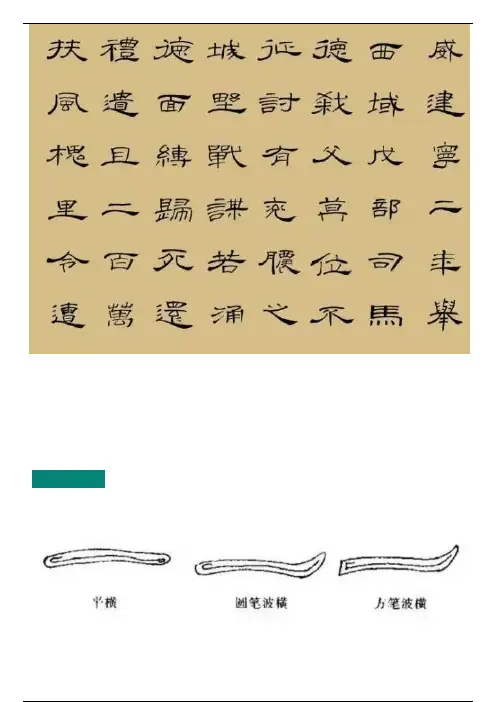 威建寧二年舉
西域戊部司馬
德弒父篡位不
征討有兗膿之
城野戰謀若涌
德面縛歸死還
禮遺且二百萬
扶風槐里令遭
平横 圆笔波横 方笔波横